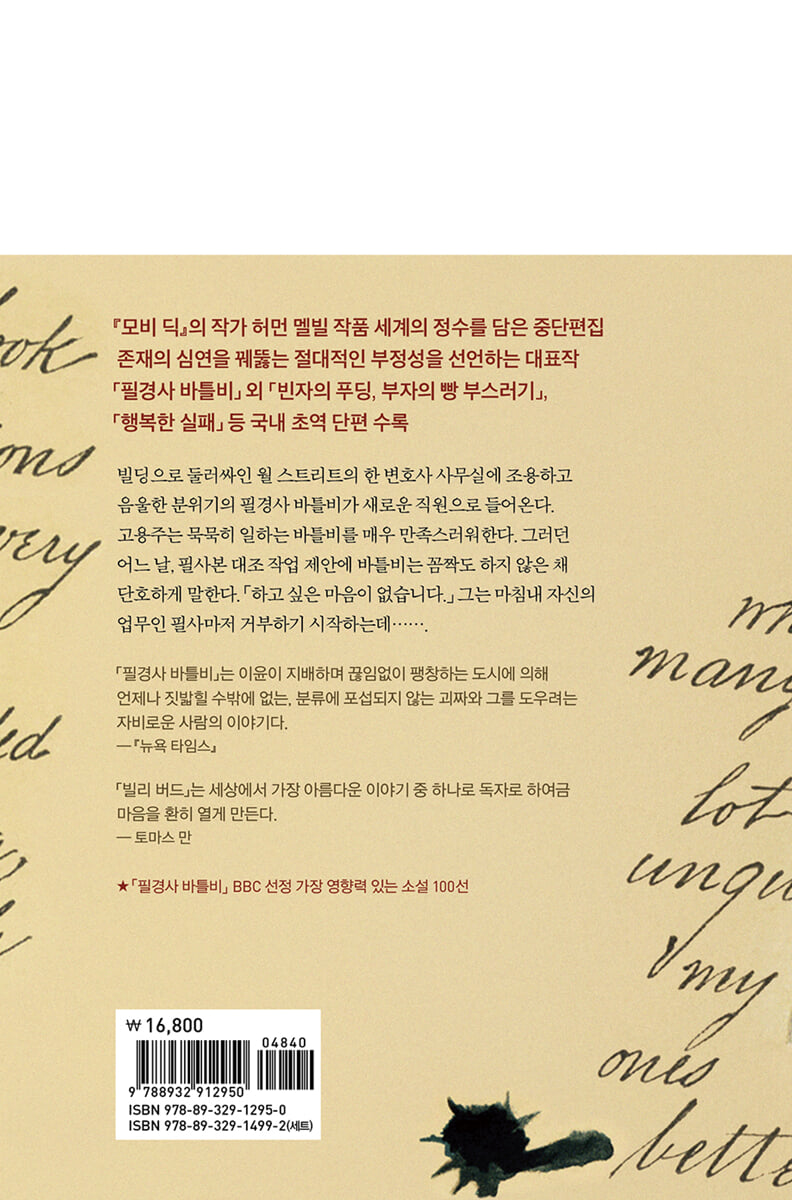 『모비 딕』의 작가 허먼 멜빌 작품 세계의 정수를 담은 중단편집
존재의 심연을 꿰뚫는 절대적인 부정성을 선언하는 대표작
「필경사 바틀비」 외 「빈자의 푸딩, 부자의 빵 부스러기」,
「행복한 실패」 등 국내 초역 단편 수록
빌딩으로 둘러싸인 월 스트리트의 한 변호사 사무실에 조용하고
음울한 분위기의 필경사 바틀비가 새로운 직원으로 들어온다.
고용주는 묵묵히 일하는 바틀비를 매우 만족스러워한다. 그러던
어느 날, 필사본 대조 작업 제안에 바틀비는 꼼짝도 하지 않은 채
단호하게 말한다. 「하고 싶은 마음이 없습니다.」 그는 마침내 자신의
업무인 필사마저 거부하기 시작하는데…….
「필경사 바틀비」는 이윤이 지배하며 끊임없이 팽창하는 도시에 의해
언제나 짓밟힐 수밖에 없는, 분류에 포섭되지 않는 괴짜와 그를 도우려는
자비로운 사람의 이야기다.
—『뉴욕 타임스』
「빌리 버드」는 세상에서 가장 아름다운 이야기 중 하나로 독자로 하여금
마음을 환히 열게 만든다.
— 토마스 만
★「필경사 바틀비」 BBC 선정 가장 영향력 있는 소설 100선
₩ 16,800
04840
9 788932 912950
ISBN 978-89-329-1295-0
ISBN 978-89-329-1499-2(세트)
ook
ons
very
many
lot
my
ones